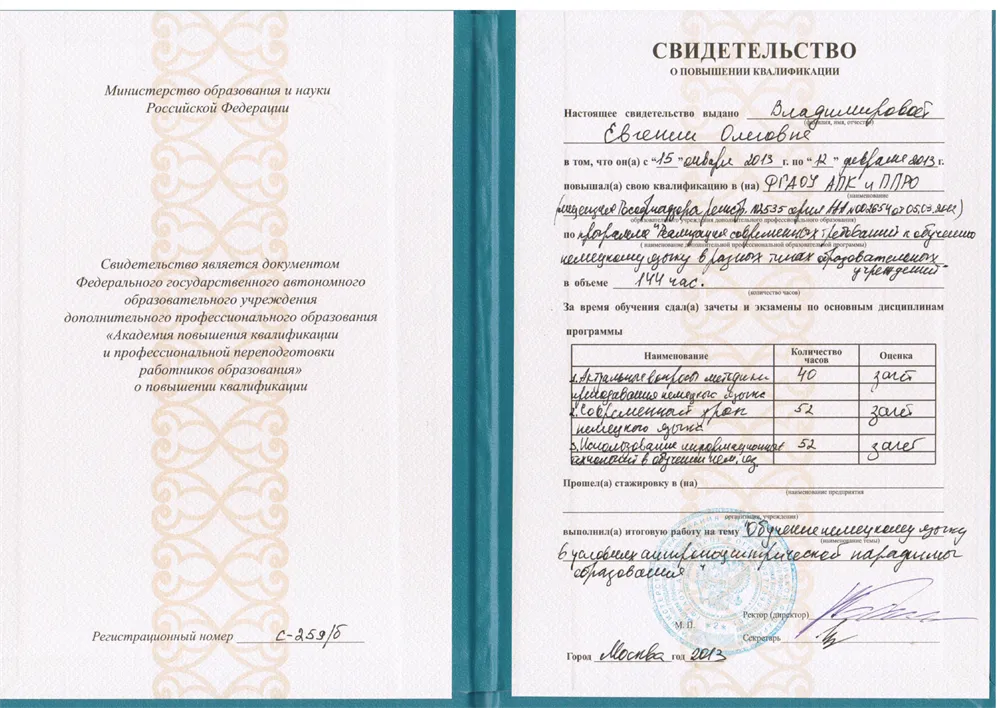 Министерство образования и науки
Российской Федерации
Свидетельство является документом
Федерального государственного автономного
образовательного учреждения
дополнительного профессионального образования
«Академия повышения квалификации
и профессиональной переподготовки
работников образования»
о повышении квалификации
Регистрационный номер С-259/б
СВИДЕТЕЛЬСТВО
О ПОВЫШЕНИИ КВАЛИФИКАЦИИ
Настоящее свидетельство выдано Владимировой
(фамилия, имя, отчество)
Евгении Олеговне
в том, что он(а) с “15” января 2013 г. по “12” февраля 2013 г.
повышал(а) свою квалификацию в (на) ФГАОУ АПК и ППРО
(наименование
Рособрнадзора регистр. серия ААА от 05.03.2012)
образовательного учреждения дополнительного профессионального образования)
по программе "Реализация современных требований к обучению
( наименование дополнительной профессиональной образовательной программы)
немецкому языку в разных типах образовательных
учреждений"
в объеме 144 час.
(количество часов)
За время обучения сдал(а) зачеты и экзамены по основным дисциплинам
программы
Наименование Количество часов Оценка
1. Актуальные вопросы методики 40 зачет
преподавания немецкого языка
2. Современный урок 52 зачет
немецкого языка
3. Использование информационных 52 зачет
технологий в обучении нем. яз.
Прошел(а) стажировку в (на)
(наименование предприятия
организации, учреждения)
выполнил(а) итоговую работу на тему "Обучение немецкому языку
(наименование темы)
в условиях антропоцентрической парадигмы
образования"
Ректор (директор)
М. П.
Секретарь
Город Москва год 2013